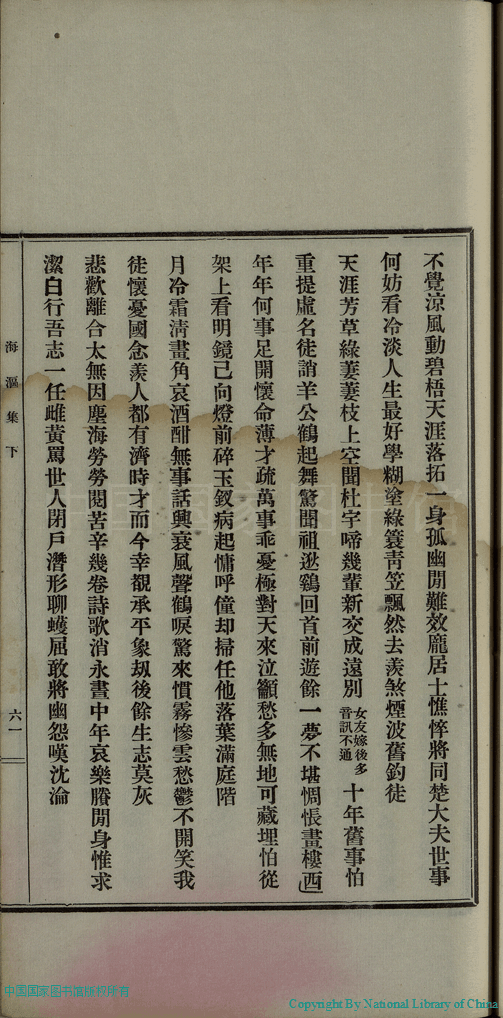 不覺涼風動碧梧天涯落拓一身孤幽閒難效龐居士憔悴將同楚大夫世事
何妨看冷淡人生最好學糊塗綠簑青笠飄然去羨煞煙波舊釣徒
天涯芳草綠萋萋枝上空聞杜宇啼幾輩新交成遠別女友嫁後多音訊不通十年舊事怕
重提虛名徒誚羊公鶴起舞驚聞祖逖鷄回首前遊餘一夢不堪惆悵畫樓西
年年何事足開懷命薄才疏萬事乖憂極對天來泣籲愁多無地可藏埋怕從
架上看明鏡已向燈前碎玉釵病起慵呼僮却掃任他落葉滿庭階
月冷霜清畫角哀酒酣無事話興衰風聲鶴唳驚來慣霧慘雲愁鬱不開笑我
徒懷憂國念羨人都有濟時才而今幸覩承平象刼後餘生志莫灰
悲歡離合太無因塵海勞勞閱苦辛幾卷詩歌消永晝中年哀樂賸閒身惟求
潔白行吾志一任雌黃罵世人閉戶潛形聊蠖屈敢將幽怨嘆沈淪
海漚集下
六一
中国国家图书馆
中国国家图书馆版权所有
Copyright By National Library of China